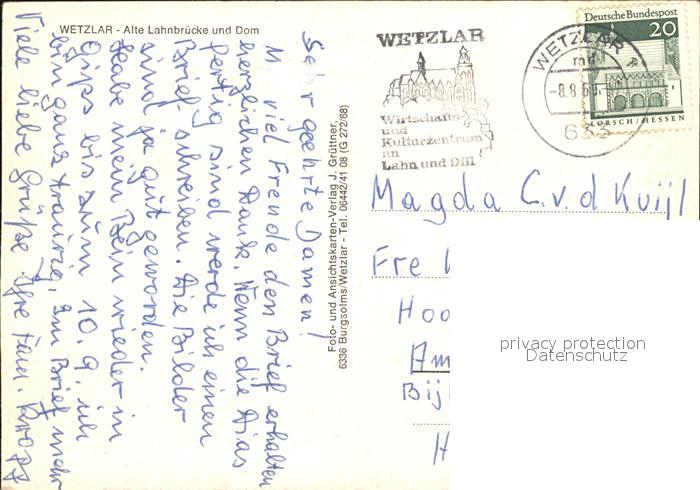 WETZLAR - Alte Lahnbrücke und Dom
Sehr geehrte Damen!
M viel Freude den Brief erhalten
herzlichen Dank. Wenn die Dias
fertig sind werde ich einen
Brief schreiben. Die Bilder
sind ja gut geworden.
Habe mein Bein wieder in
Gips bis zum 10.9. ich
bin ganz traurig, im Brief mehr
Viele liebe Grüße Ihre Fam.
Foto- und Ansichtskarten-Verlag J. Grüttner,
6336 Burgsolms/Wetzlar - Tel. 06442/41 08 (G 272/68)
WETZLAR
Wirtschafts-
und
Kulturzentrum
an
Lahn und Dill
WETZLAR
md
-8.8.
633
Deutsche Bundespost
20
LORSCH/HESSEN
Magda C.v.d Kuijl
Fre
Hoo
Am
Bij
H
privacy protection
Datenschutz